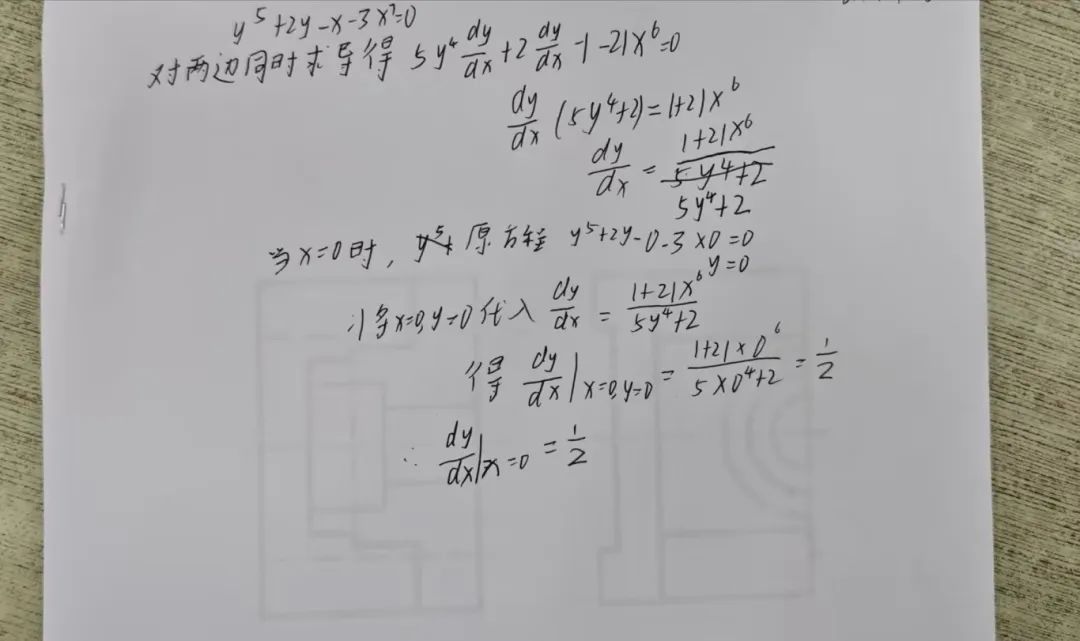 y⁵+2y-x-3x⁷=0
对两边同时求导得 5y⁴ dy/dx + 2 dy/dx -1-21x⁶=0
dy/dx (5y⁴+2)=1+21x⁶
dy/dx = (1+21x⁶)/(5y⁴+2)
当x=0时, 原方程 y⁵+2y-0-3×0=0
y=0
将x=0,y=0代入 dy/dx = (1+21x⁶)/(5y⁴+2)
得 dy/dx|x=0,y=0 = (1+21×0⁶)/(5×0⁴+2) = 1/2
∴ dy/dx|x=0 = 1/2